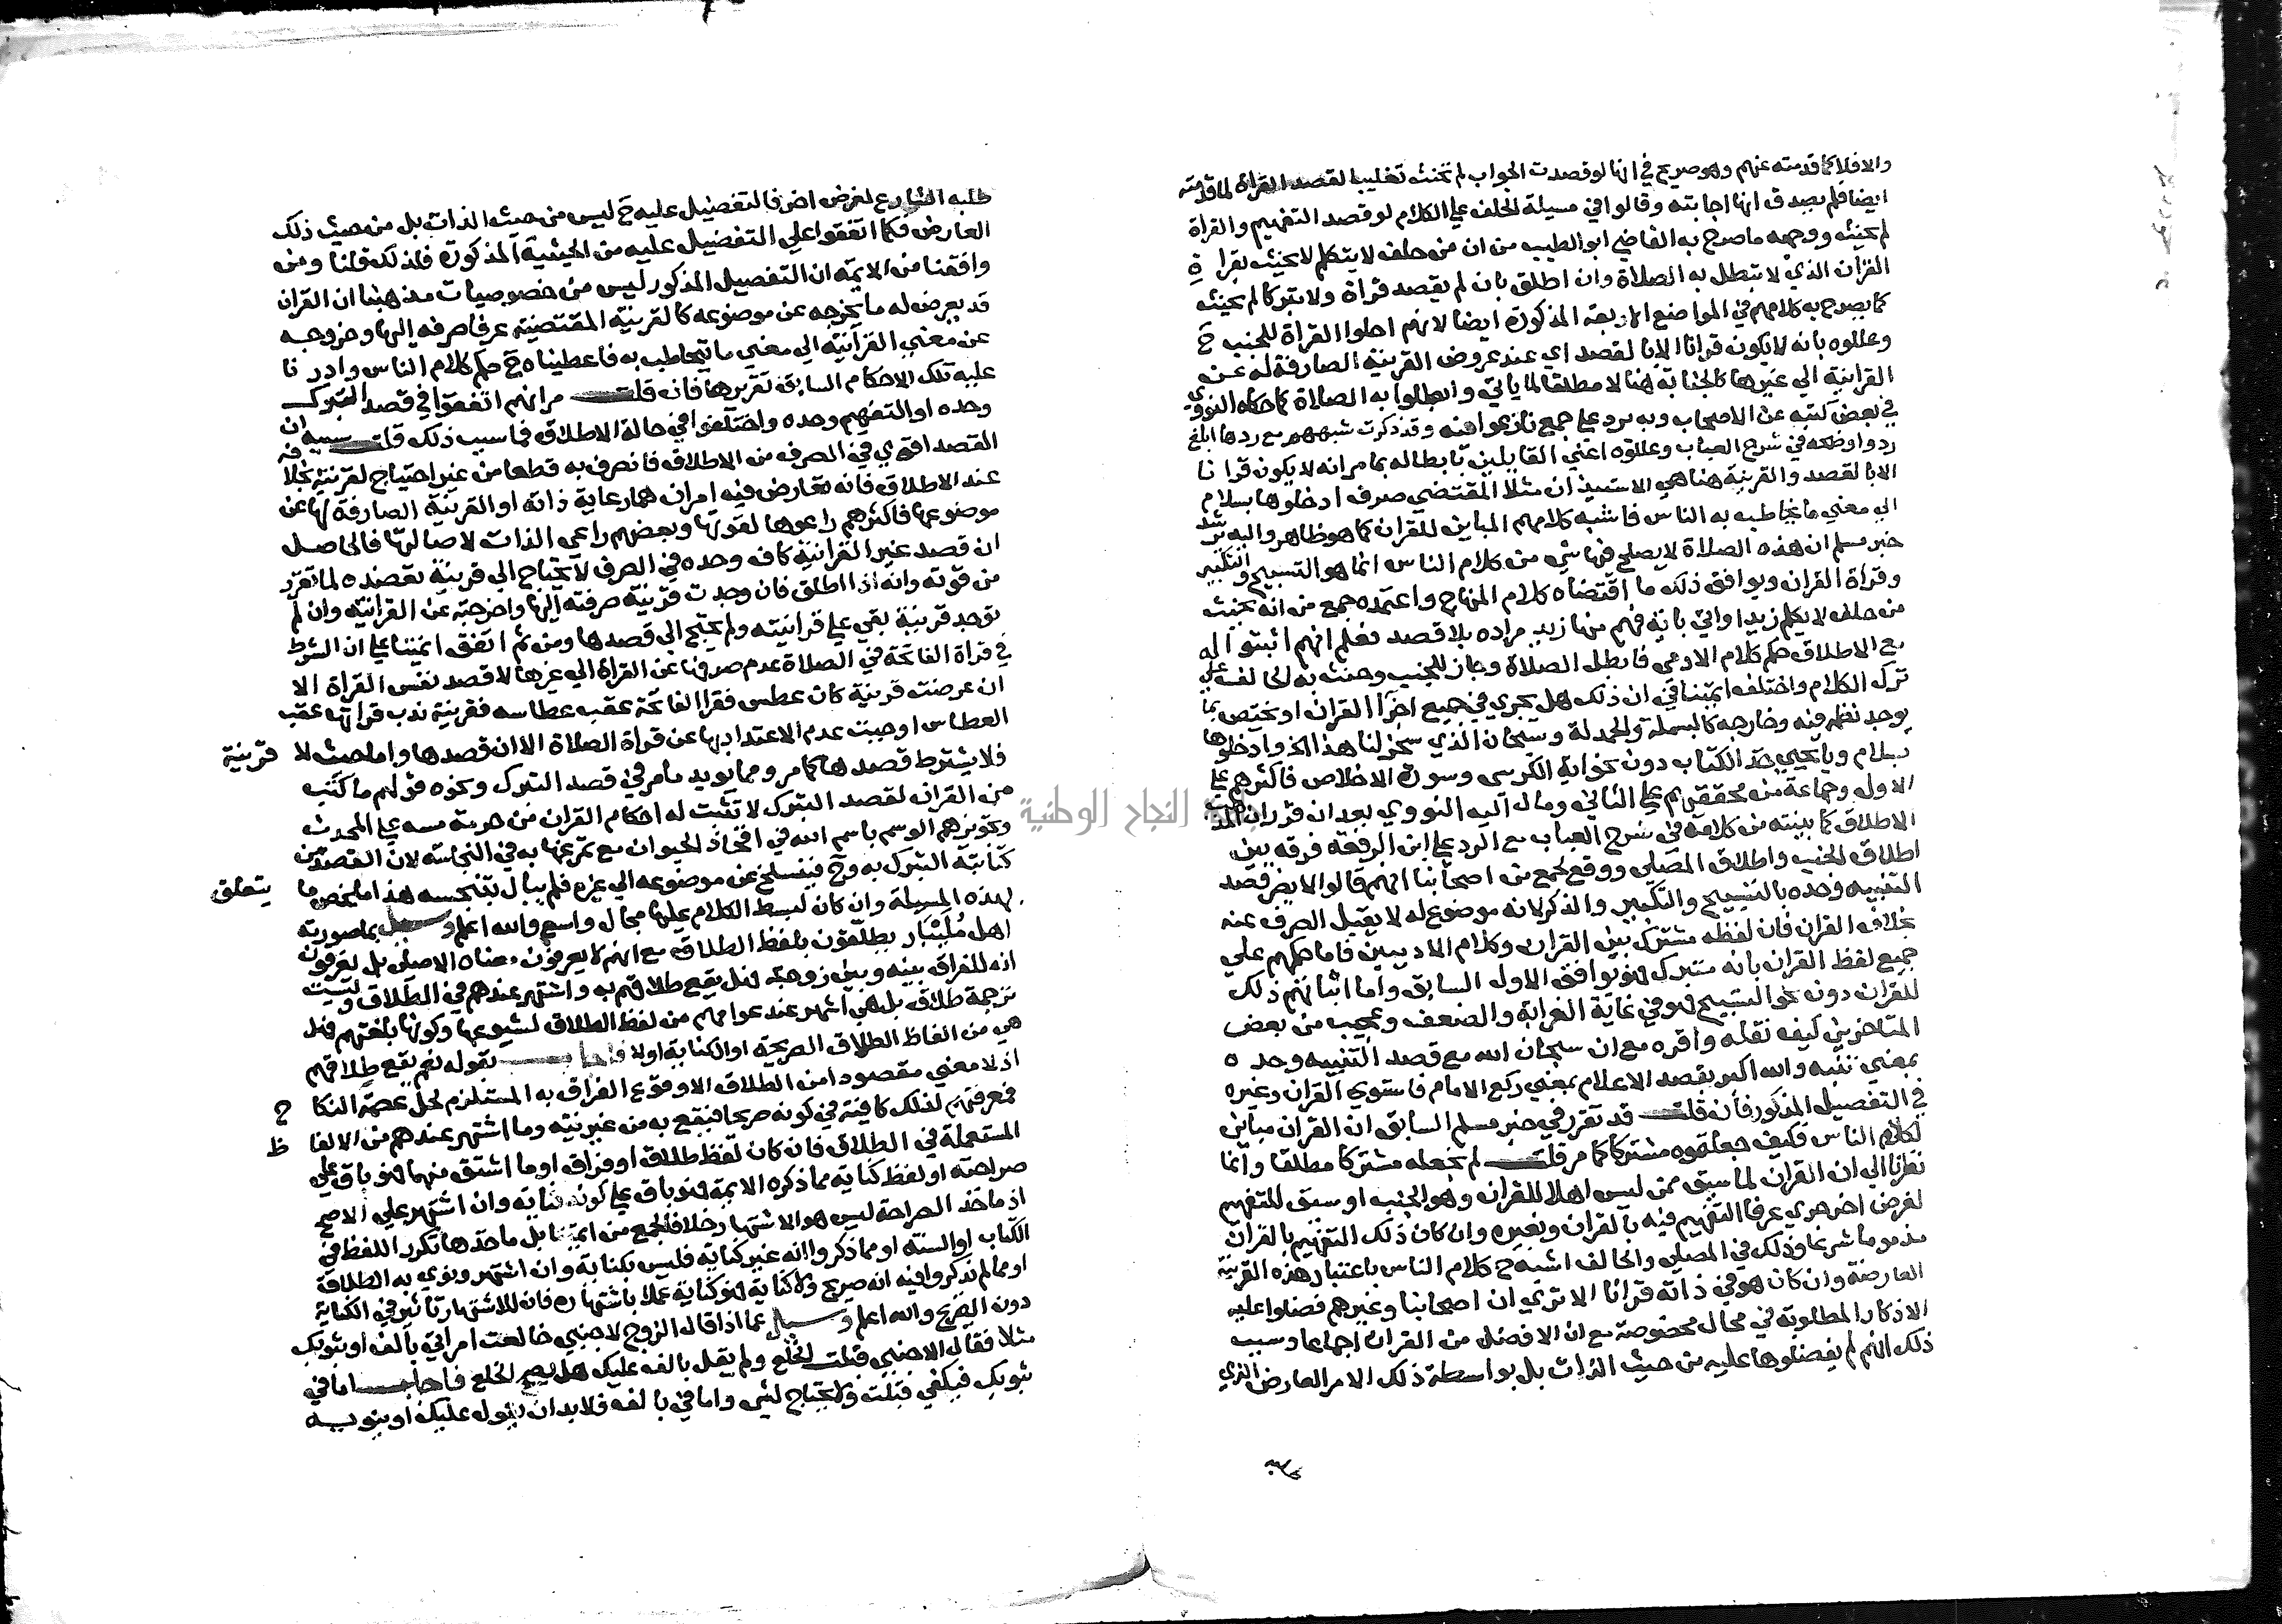 والا فلا كما قدمته عنهم وهو صريح في انها لو قصدت الجواب لم تحنث تغليبا لقصد القراة لما قدمته
ايضا فلم يصدق انها اجابته وقالوا في مسيلة الحلف علي الكلام لو قصد التفهيم والقراة
لم يحنث ووجهه ما صرح به القاضي ابو الطيب من ان من حلف لا يتكلم لا يحنث بقراة
القران الذي لا تبطل به الصلاة وان اطلق بان لم يقصد قراة ولا تبركا لم يحنث
كما يصرح به كلامهم في المواضع الاربعة المذكورة ايضا لانهم احلوا القراة للجنب ح
وعللوه بانه لا يكون قرانا الا بالقصد اي عند عروض القرينة الصارفة له عن
القرانية الي غيرها كالجنابة هنا لا مطلقا لما ياتي وابطلوا به الصلاة كما حكاه النووي
في بعض كتبه عن الاصحاب وبه يرد علي جمع نازعوا فيه وقد ذكرت شبههم مع ردها ابلغ
رد واوضحه في شرح العباب وعللوه اعني القايلين بابطاله بما مر انه لا يكون قرانا
الا بالقصد والقرينة هنا هي الاستيذان مثلا المقتضي صرف ادخلوها بسلام
الي معني ما يخاطب به الناس فاشبه كلامهم المباين للقران كما هو ظاهر واليه يرشد
خبر مسلم ان هذه الصلاة لا يصلح فيها شي من كلام الناس انما هو التسبيح والتكبير
وقراة القران ويوافق ذلك ما اقتضاه كلام المنهاج واعتمده جمع من انه يحنث
من حلف لا يكلم زيدا واتي باية فهم منها زيد مراده بلا قصد فعلم انهم اثبتوا له
مع الاطلاق حكم كلام الادمي فابطل الصلاة وجاز للجنب وحنث به الحالف علي
ترك الكلام واختلف ايمتنا في ان ذلك هل يجري في جميع اجزآ القران او يختص بما
يوجد نظمه فيه وخارجه كالبسملة والحمدلة وسبحان الذي سخر لنا هذا الخ وادخلوها
بسلام ويا يحيي خذ الكتاب دون نحو اية الكرسي وسورة الاخلاص فاكثرهم علي
الاول وجماعة من محققيهم علي الثاني ومال اليه النووي بعد ان قرر ان المذهب
الاطلاق كما بينته من كلامه في شرح العباب مع الرد علي ابن الرفعة فرقه بين
اطلاق الجنب واطلاق المصلي ووقع لجمع من اصحابنا انهم قالوا لا يضر قصد
التنبيه وحده بالتسبيح والتكبير والذكر لانه موضوع له لا يقبل الصرف عنه
بخلاف القران فان لفظه مشترك بين القران وكلام الادميين فاما حكمهم علي
جميع لفظ القران بانه مشترك فهو يوافق الاول السابق واما اثباتهم ذلك
للقران دون نحو التسبيح فهو في غاية الغرابة والضعف وعجيب من بعض
المتاخرين كيف نقله واقره مع ان سبحان الله مع قصد التنبيه وحده
بمعني تنبه والله اكبر بقصد الاعلام بمعني ركع الامام فاستوي القران وغيره
في التفصيل المذكور فان قلت قد تقرر في خبر مسلم السابق ان القران مباين
لكلام الناس فكيف جعلتموه مشتركا كما مر قلت لم نجعله مشتركا مطلقا وانما
نظرنا الي ان القران لما سبق ممن ليس اهلا للقران وهو الجنب او سبق للتفهيم
لغرض اخر جري عرفا التفهيم فيه بالقران وبغيره وان كان ذلك التفهيم بالقران
مذموما شرعا وذلك في المصلي والحالف اشبه ح كلام الناس باعتبار هذه القرينة
العارضة وان كان هو في ذاته قرانا الا تري ان اصحابنا وغيرهم فضلوا عليه
الاذكار المطلوبة في محال مخصوصة مع ان الافضل من القران اجماعا وسبب
ذلك انهم لم يفضلوها عليه من حيث الذات بل بواسطة ذلك الامر العارض الذي
طلبه الشارع لغرض اخر فالتفضيل عليه ح ليس من حيث الذات بل من حيث ذلك
العارض فكما اتفقوا علي التفضيل عليه من الحيثية المذكورة فلذلك قلنا ومن
وافقنا من الايمة ان التفصيل المذكور ليس من خصوصيات مذهبنا ان القران
قد يعرض له ما يخرجه عن موضوعه كالقرينة المقتضية عرفا صرفه اليها وخروجه
عن معني القرآنية الي معني ما يتخاطب به فاعطيناه ح حكم كلام الناس وادرنا
عليه تلك الاحكام السابق تقريرها فان قلت مر انهم اتفقوا في قصد التبرك
وحده او التفهيم وحده واختلفوا في حالة الاطلاق فما سبب ذلك قلت سببه ان
القصد اقوي في الصرف من الاطلاق فانصرف به قطعا من غير احتياج لقرينة بخلافه
عند الاطلاق فانه تعارض فيه امران هما رعاية ذاته او القرينة الصارفة لها عن
موضوعها فاكثرهم راعوها لقوتها وبعضهم راعي الذات لاصالتها فالحاصل
ان قصد غير القرانية كاف وحده في الصرف لا يحتاج الي قرينة تعضده لما تقرر
من قوته وانه اذا اطلق فان وجدت قرينة صرفته اليها واخرجته عن القرانية وان لم
توجد قرينة بقي علي قرانيته ولم يحتج الي قصدها ومن ثم اتفق ايمتنا علي ان الشرط
في قراة الفاتحة في الصلاة عدم صرفها عن القراة الي غيرها لا قصد نفس القراة الا
ان عرضت قرينة كان عطس فقرا الفاتحة عقب عطاسه فقرينة ندب قراتها عقب
العطاس اوجبت عدم الاعتداد بها عن قراة الصلاة الا ان قصدها واما حيث لا قرينة
فلا يشترط قصدها كما مر ومما يويد ما مر في قصد التبرك ونحوه قولهم ما كتب
من القران لقصد التبرك لا تثبت له احكام القران من حرمة مسه علي المحدث
وتجويزهم الوسم باسم الله في افخاذ الحيوان مع تمرغها به في النجاسة لان القصد من
كتابته التبرك به وح فينسلخ عن موضوعه الي غيره فلم يبال بتنجسه هذا ما يخص ما يتعلق
بهذه المسيلة وان كان لبسط الكلام عليها مجال واسع والله اعلم وسئل بما صورته
اهل مليبار يطلقون بلفظ الطلاق مع انهم لا يعرفون معناه الاصلي بل يعرفون
انه للفراق بينه وبين زوجته فهل يقع طلاقهم به واشتهر عندهم في الطلاق
ترجمة طلاق بل هي اشهر عند عوامهم من لفظ الطلاق لشيوعها وكونها بلغتهم فهل
هي من الفاظ الطلاق الصريحة او الكناية اولا فاجاب بقوله نعم يقع طلاقهم
اذ لا معني مقصودا من الطلاق الا وقوع الفراق به المستلزم لحل عصمة النكاح
فمعرفتهم لذلك كافية في كونه صريحا فيقع به من غير نية وما اشتهر عندهم من الالفاظ
المستعملة في الطلاق فان كان لفظ طلاق او فراق او ما اشتق منهما فهو باق علي
صراحته او لفظ كناية مما ذكره الايمة فهو باق علي كونه كناية وان اشتهر علي الاصح
اذ ماخذ الصراحة ليس هو الاشتهار خلافا لجمع من ايمتنا بل ماخذها تكرر اللفظ في
الكتاب او السنة او مما ذكروا انه غير كناية فليس بكناية وان اشتهر ونوي به الطلاق
او مما لم يذكروا فيه انه صريح ولا كناية فهو كناية عملا باشتهاره فان للاشتهار تاثيرا في الكناية
دون الصريح والله اعلم وسئل عما اذا قال الزوج لاجنبي خالعت امراتي بالف او بثوبك
مثلا فقال الاجنبي قبلت الخلع ولم يقل بالف عليك هل يصح الخلع فاجاب اما في
بثوبك فيكفي قبلت ولا يحتاج لشي واما في بالف فلا بد ان يقول عليك او ينويه
جامعة النجاح الوطنية